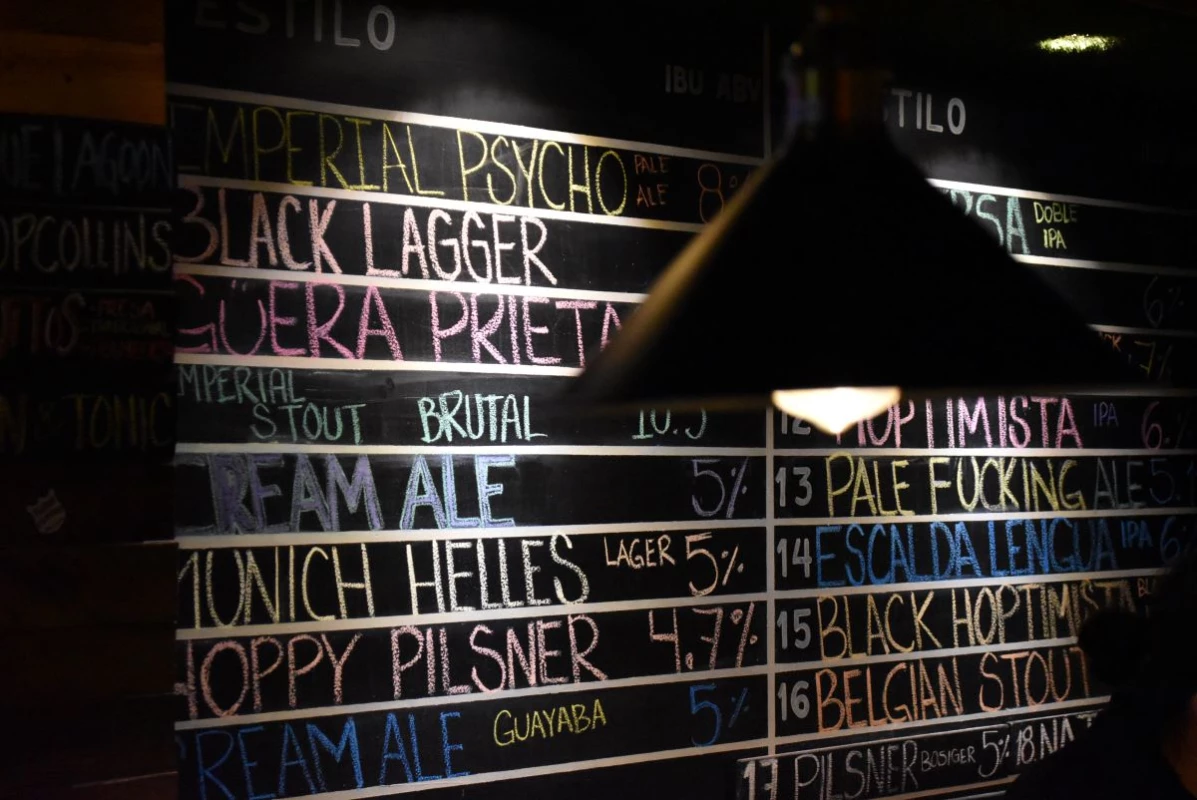 ESTILO
IBU ABV
IMPERIAL PSYCHO PALE ALE 8%
BLACK LAGGER
GÜERA PRIETA
IMPERIAL STOUT BRUTAL 10.5
CREAM ALE 5%
MUNICH HELLES LAGER 5%
HOPPY PILSNER 4.7%
CREAM ALE GUAYABA 5%
TILO
DOBLE IPA
6%
7%
12 HOPTIMISTA IPA 6.
13 PALE FUCKING ALE 5.
14 ESCALDA LENGUA IPA 6
15 BLACK HOPTIMISTA
16 BELGIAN STOUT
17 PILSNER BOSIGER 5% 18.
LAGOON
OPCOLLINS
TONIC